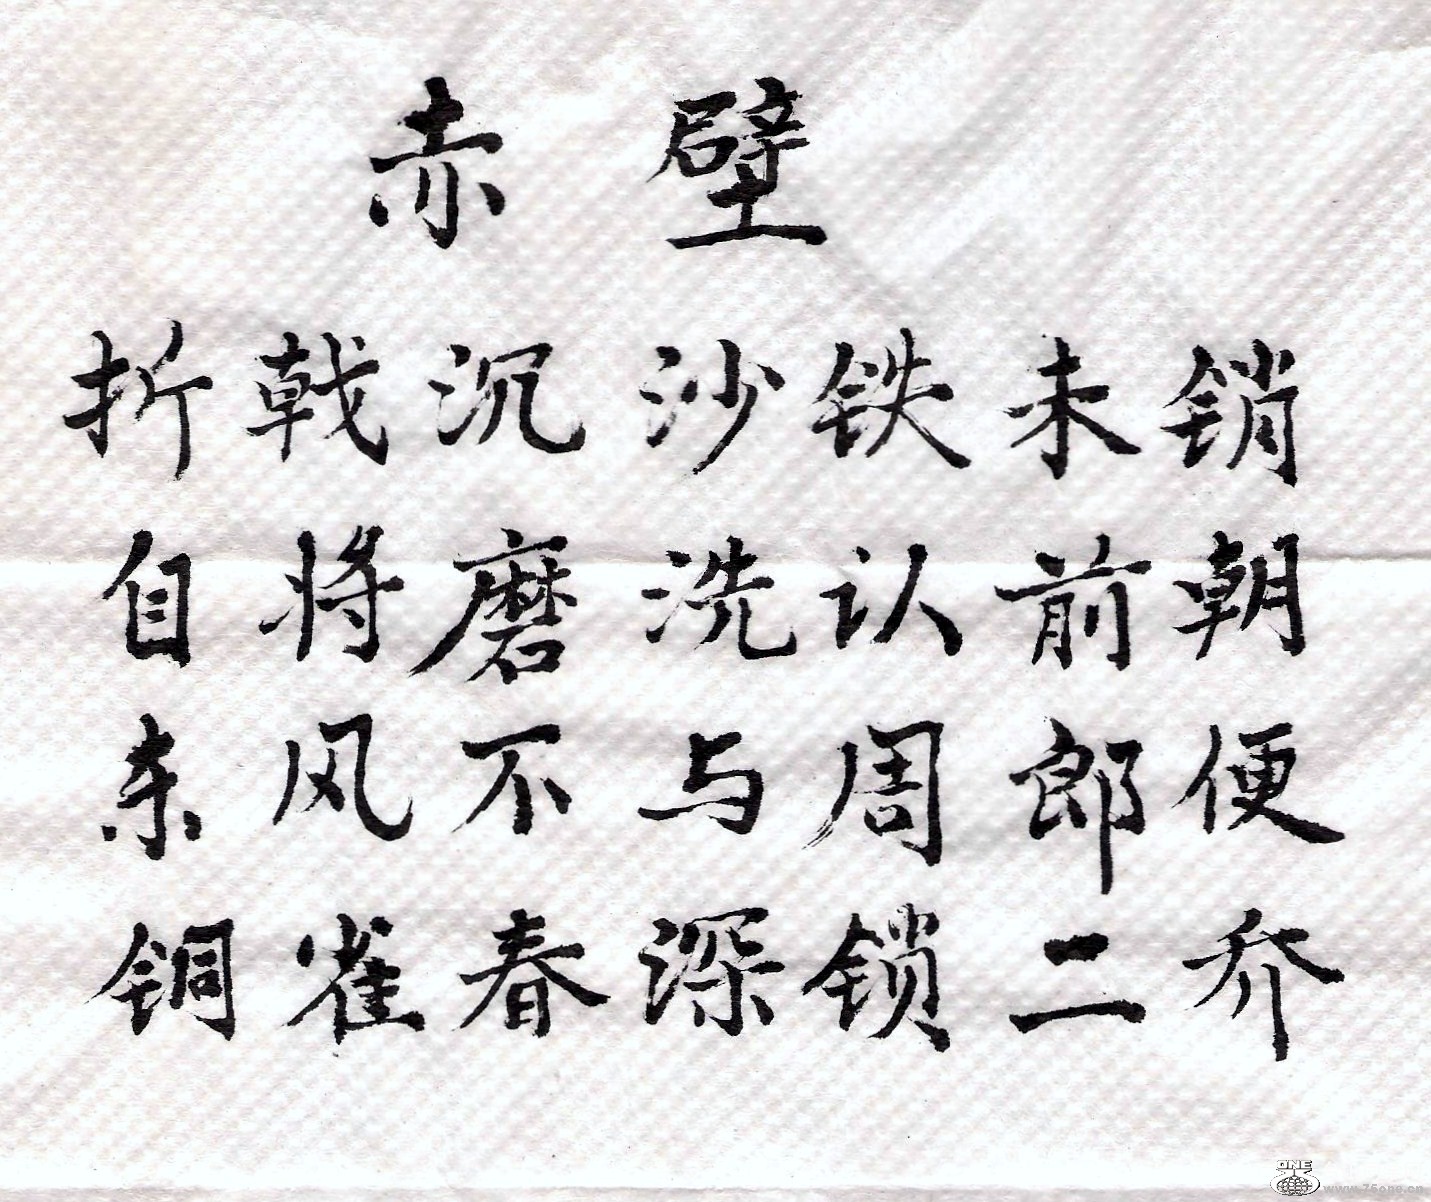 赤壁
折戟沉沙铁未销
自将磨洗认前朝
东风不与周郎便
铜雀春深锁二乔
ONE